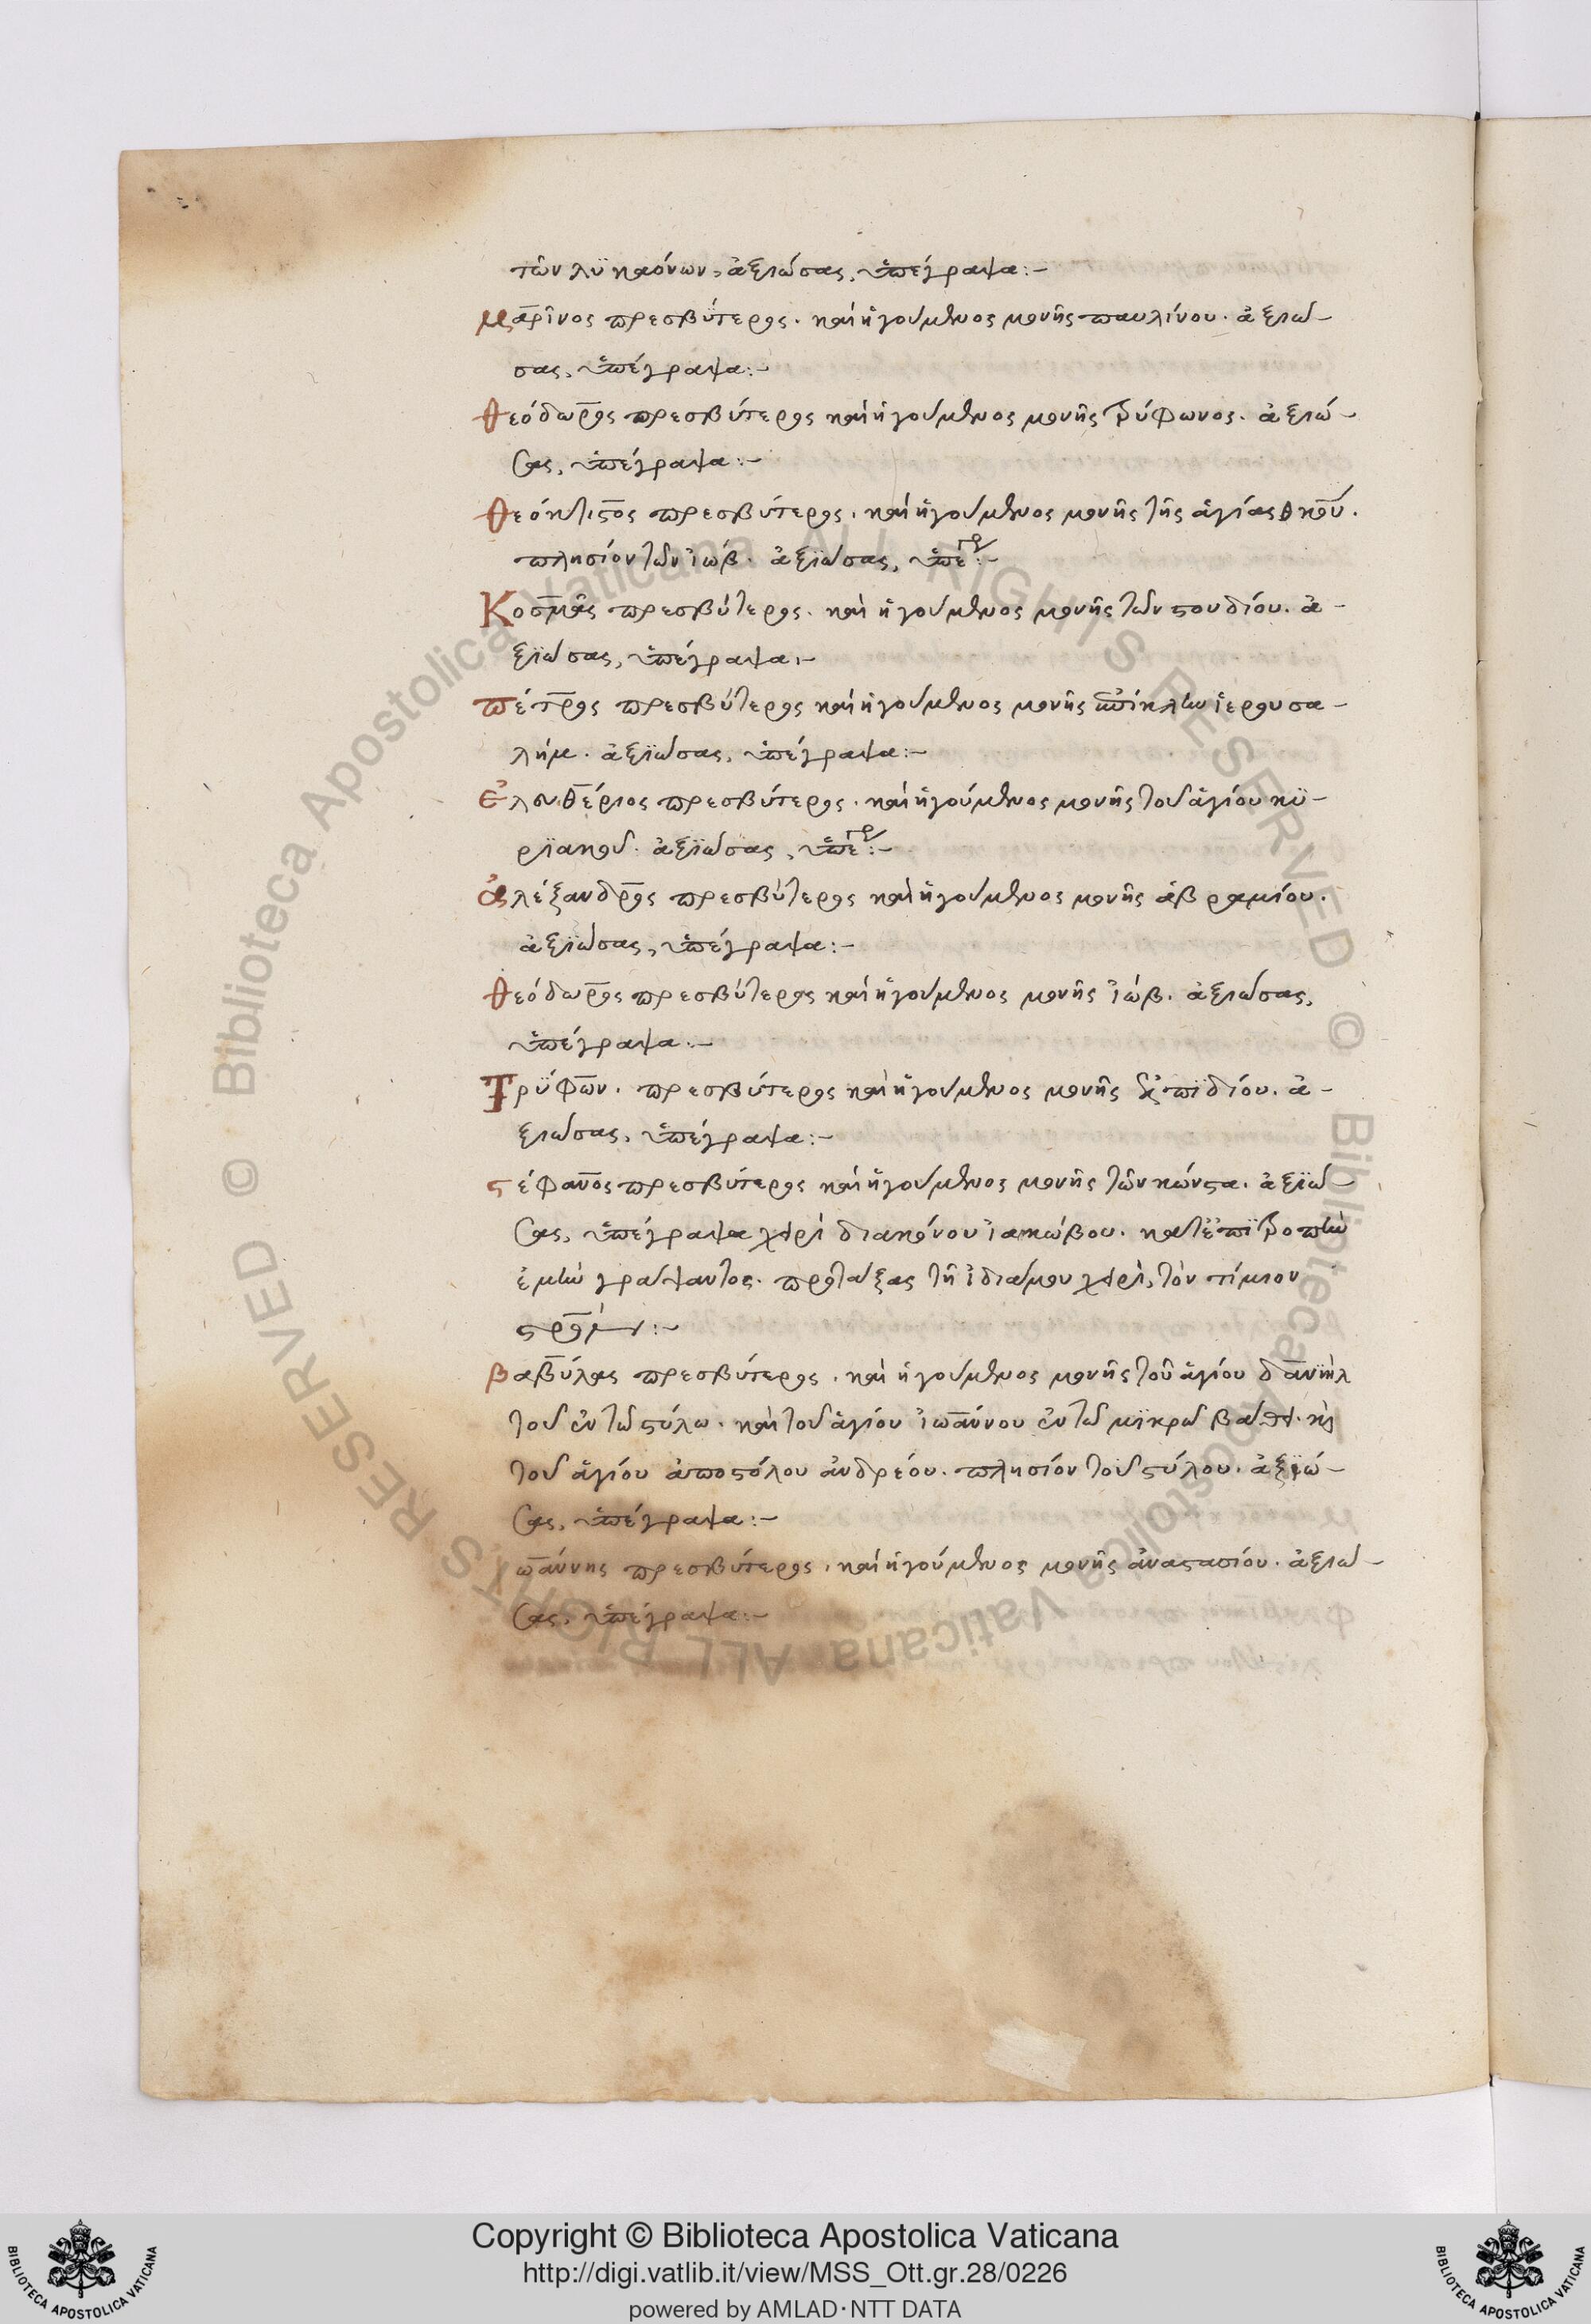 τῶν λϋκαόνων, ἀξιώσας, ὑπέγραψα:–
Μαρῖνος πρεσβύτερος. καὶ ἡγούμενος μονῆς παυλίνου. ἀξιώ–
σας, ὑπέγραψα:–
θεόδωρος πρεσβύτερος καὶ ἡγούμενος μονῆς τρύφωνος. ἀξιώ–
σας, ὑπέγραψα:–
θεόκτιστος πρεσβύτερος. καὶ ἡγούμενος μονῆς τῆς ἁγίας θκου.
πλησίον τῶν ἰώβ. ἀξϊώσας, ὑπέγρ:–
Κοσμᾶς πρεσβύτερος. καὶ ἡγούμενος μονῆς τῶν στουδίου. ἀ–
ξϊώσας, ὑπέγραψα:–
πέτρος πρεσβύτερος καὶ ἡγούμενος μονῆς ἱερουσα–
λήμ. ἀξϊώσας, ὑπέγραψα:–
ἐλευθέριος πρεσβύτερος. καὶ ἡγούμενος μονῆς τοῦ ἁγίου κϋ–
ρϊακοῦ. ἀξϊώσας, ὑπέγρ:–
ἀλέξανδρος πρεσβύτερος καὶ ἡγούμενος μονῆς ἀβραμίου.
ἀξϊώσας, ὑπέγραψα:–
θεόδωρος πρεσβύτερος καὶ ἡγούμενος μονῆς ἰώβ. ἀξιώσας,
ὑπέγραψα:–
Τρύφων. πρεσβύτερος καὶ ἡγούμενος μονῆς δίου. ἀ–
ξιώσας, ὑπέγραψα:–
στέφανος πρεσβύτερος καὶ ἡγούμενος μονῆς τῶν κώνστα. ἀξϊώ–
σας, ὑπέγραψα χειρὶ διακόνου ἰακώβου. κατ ἐπϊτροπὴν
ἐμὴν γράψαντος. προτάξας τῆ ἰδία μου χειρὶ, τὸν τίμιον
στρόν:–
βαβύλας πρεσβύτερος. καὶ ἡγούμενος μονῆς τοῦ ἁγίου δανϊὴλ
τοῦ ἐν τῶ στύλω. καὶ τοῦ ἁγίου ἰωάννου ἐν τῶ μϊκρῶ καὶ
τοῦ ἁγίου ἀποστόλου ἀνδρέου. πλησίον τοῦ στύλου. ἀξϊώ–
σας, ὑπέγραψα:–
ἰωάννης πρεσβύτερος. καὶ ἡγούμενος μονῆς ἀναστασίου. ἀξιώ–
σας, ὑπέγραψα:–
© Biblioteca Apostolica Vaticana ALL RIGHTS RESERVED © Biblioteca Apostolica Vaticana ALL RIGHTS RESERVED
Copyright © Biblioteca Apostolica Vaticana
http://digi.vatlib.it/view/MSS_Ott.gr.28/0226
powered by AMLAD·NTT DATA
BIBLIOTECA APOSTOLICA VATICANA
BIBLIOTECA APOSTOLICA VATICANA